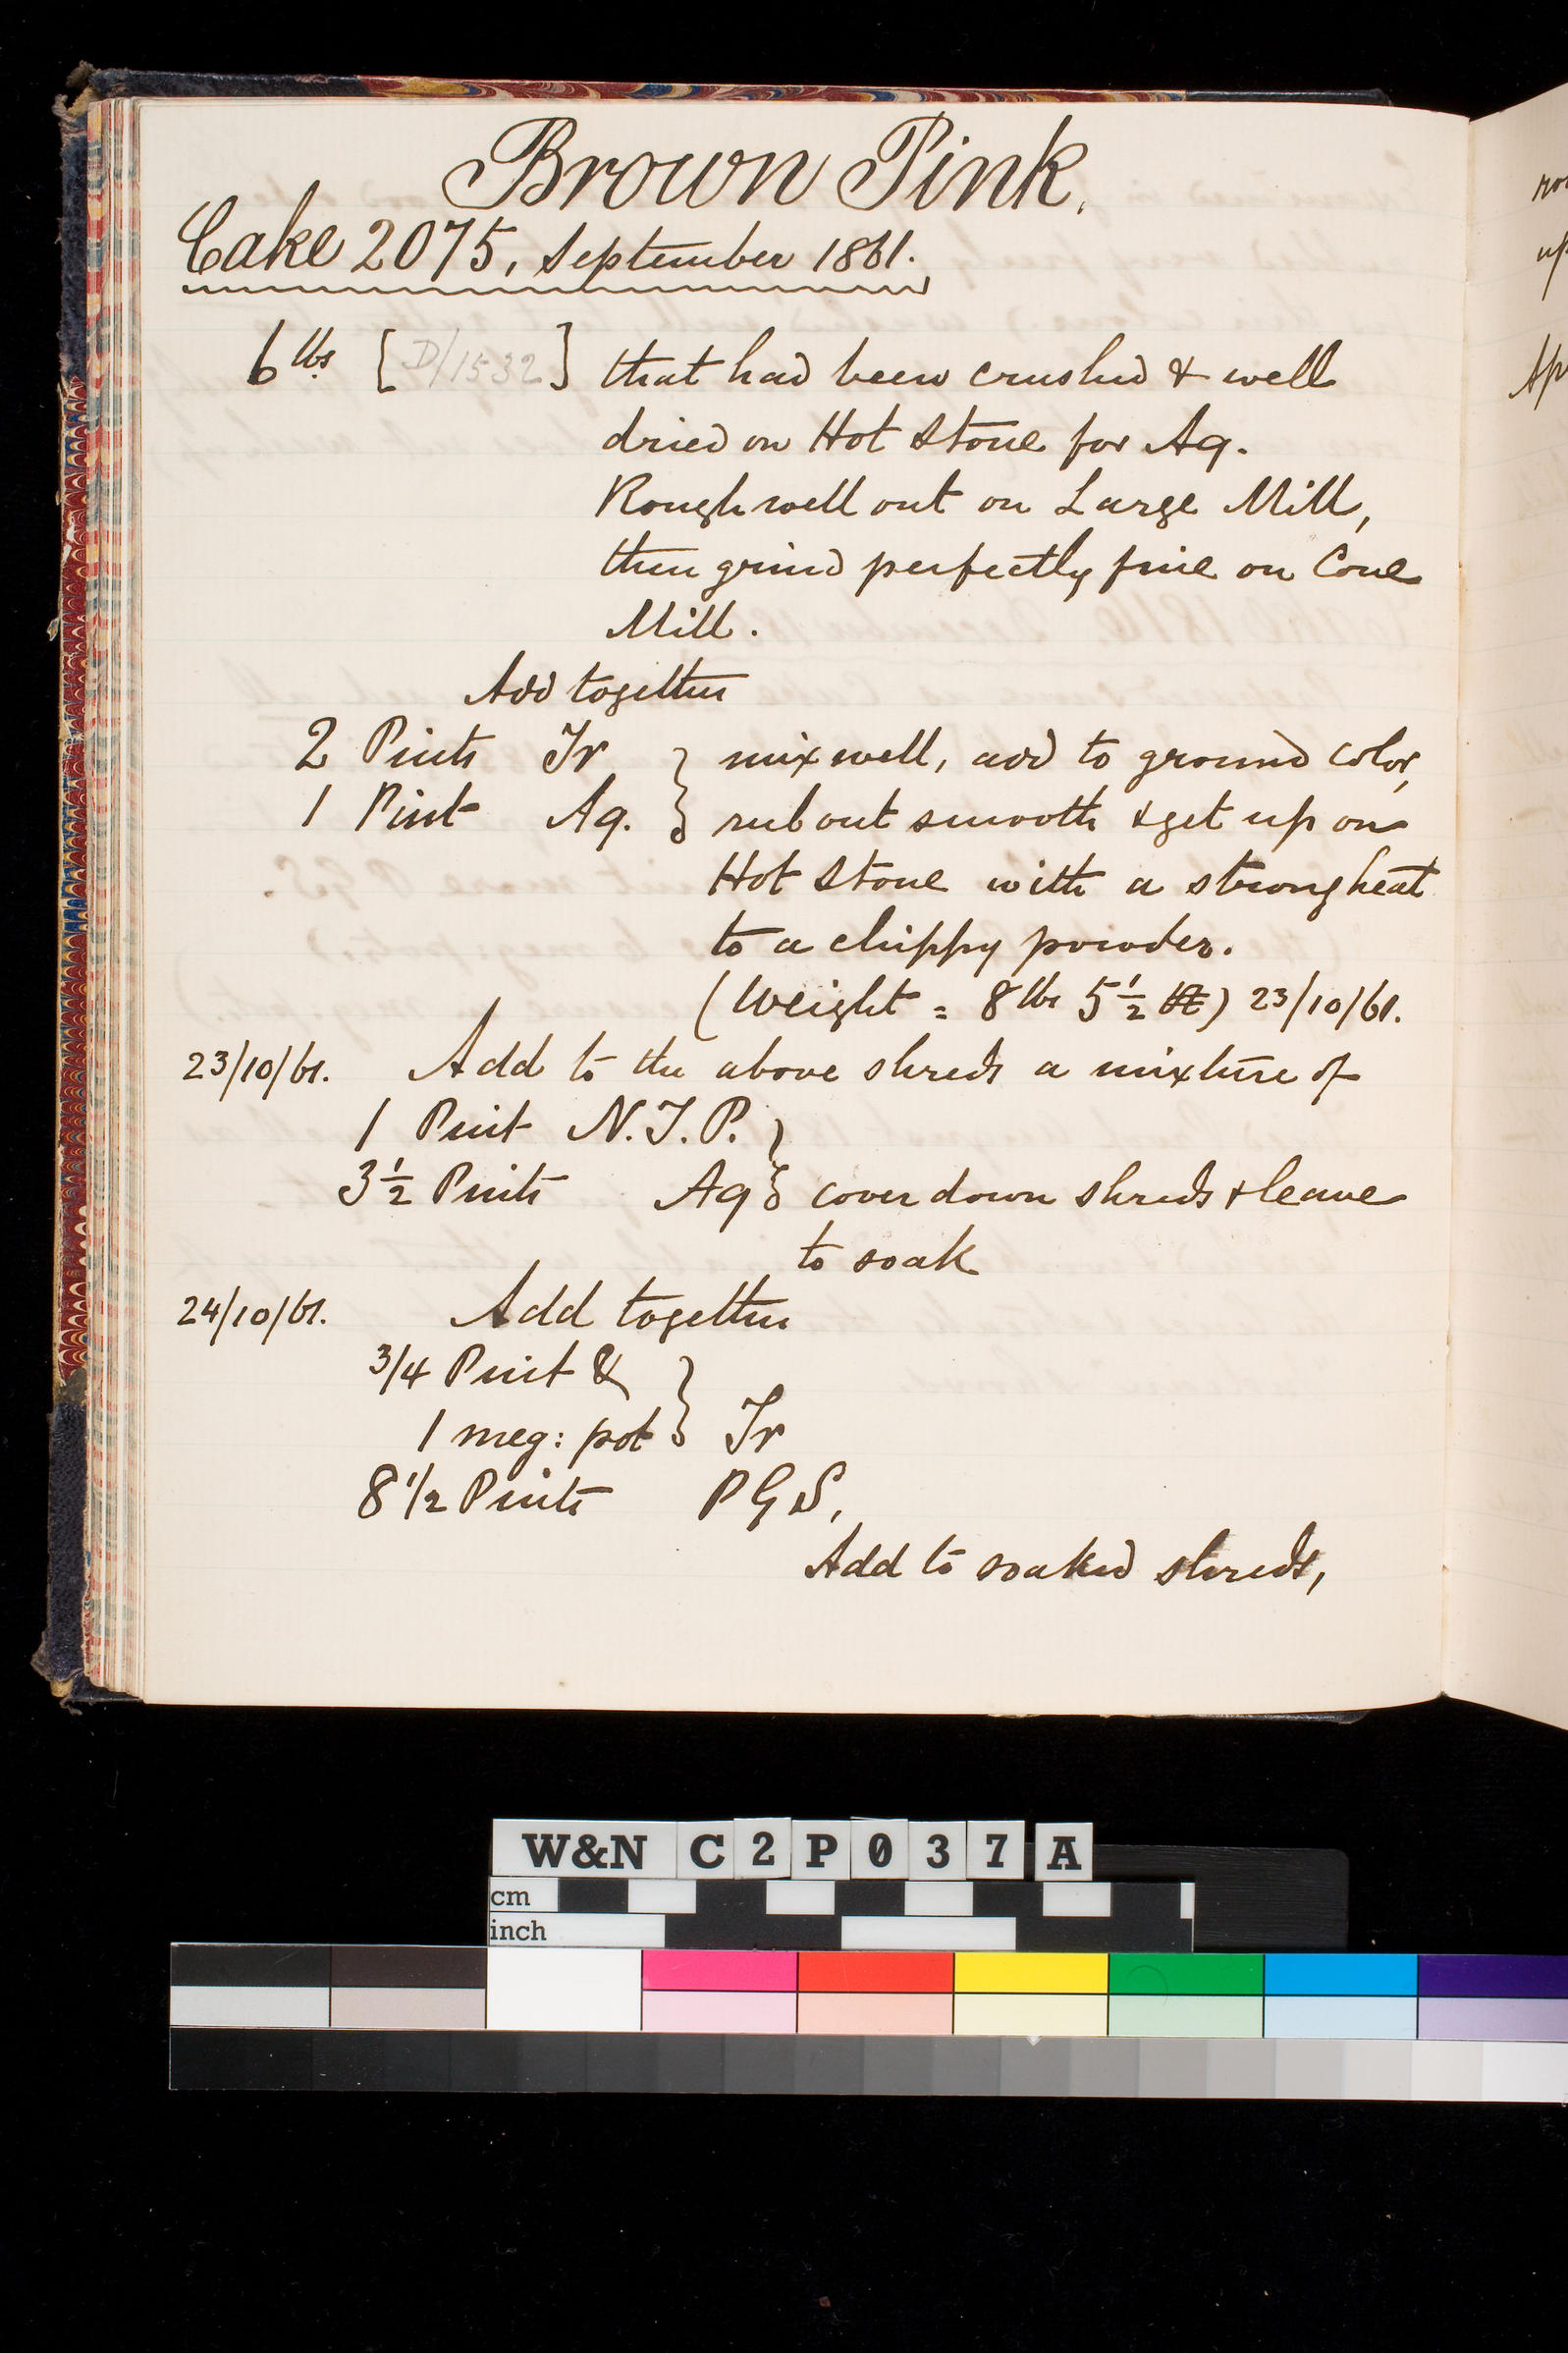 Brown Pink.
Cake 2075, September 1861.
6 lbs [D/1532] that had been crushed & well
dried on Hot Stone for Aq.
Rough well out on Large Mill,
then grind perfectly fine on Cone
Mill.
Add together
2 Pints Tr } mix well, add to ground color,
1 Pint Aq. } rub out smooth & get up on
Hot Stone with a strong heat
to a chippy powder.
(Weight = 8 lbs 5 1/2) 23/10/61.
23/10/61. Add to the above shreds a mixture of
1 Pint N.T.P. }
3 1/2 Pints Aq } cover down shreds & leave
to soak
24/10/61. Add together
3/4 Pint & }
1 meg: pot } Tr
8 1/2 Pints P G S,
Add to soaked shreds,
W&N C2P037A
cm
inch